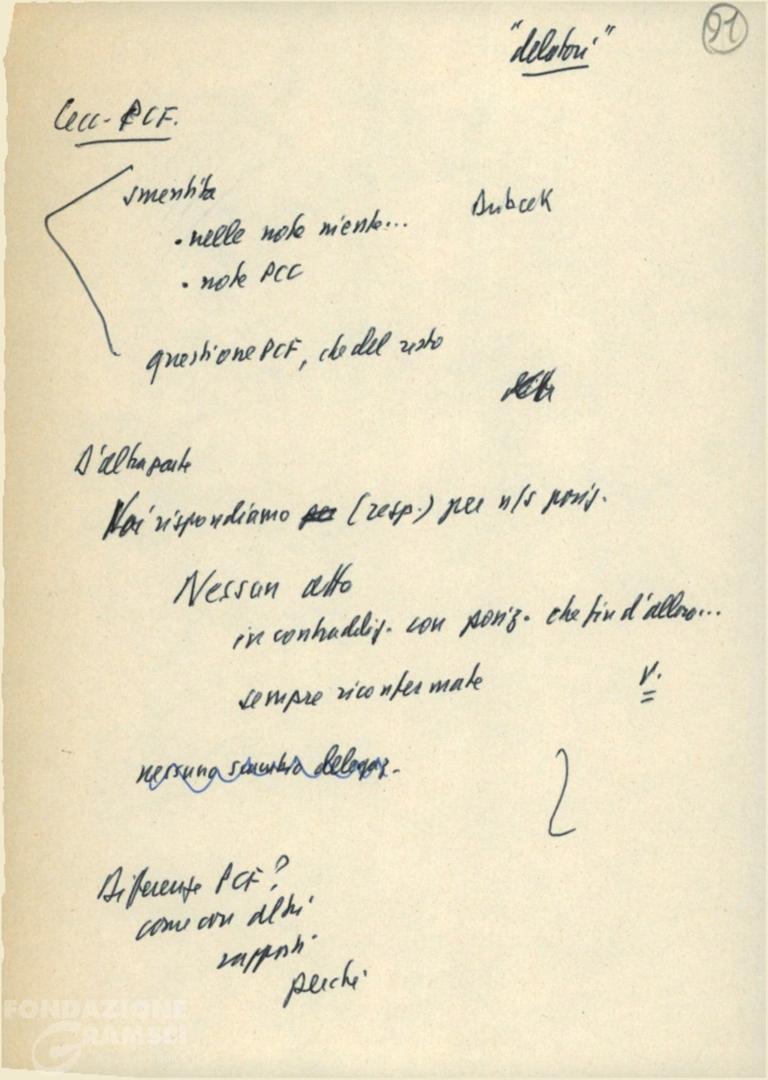 91
"delatori"
Cecc - PCF.
smentita
Dubcek
• nelle note niente...
• note PCC
questione PCF, che del resto
D'altra parte
Noi rispondiamo per (resp.) per n/s posiz.
Nessun atto
in contraddiz. con posiz. che fin d'allora...
sempre riconfermate
V.
nessuno scambio delegaz.
Differenze PCF?
come con altri
rapporti
perché
FONDAZIONE
GRAMSCI